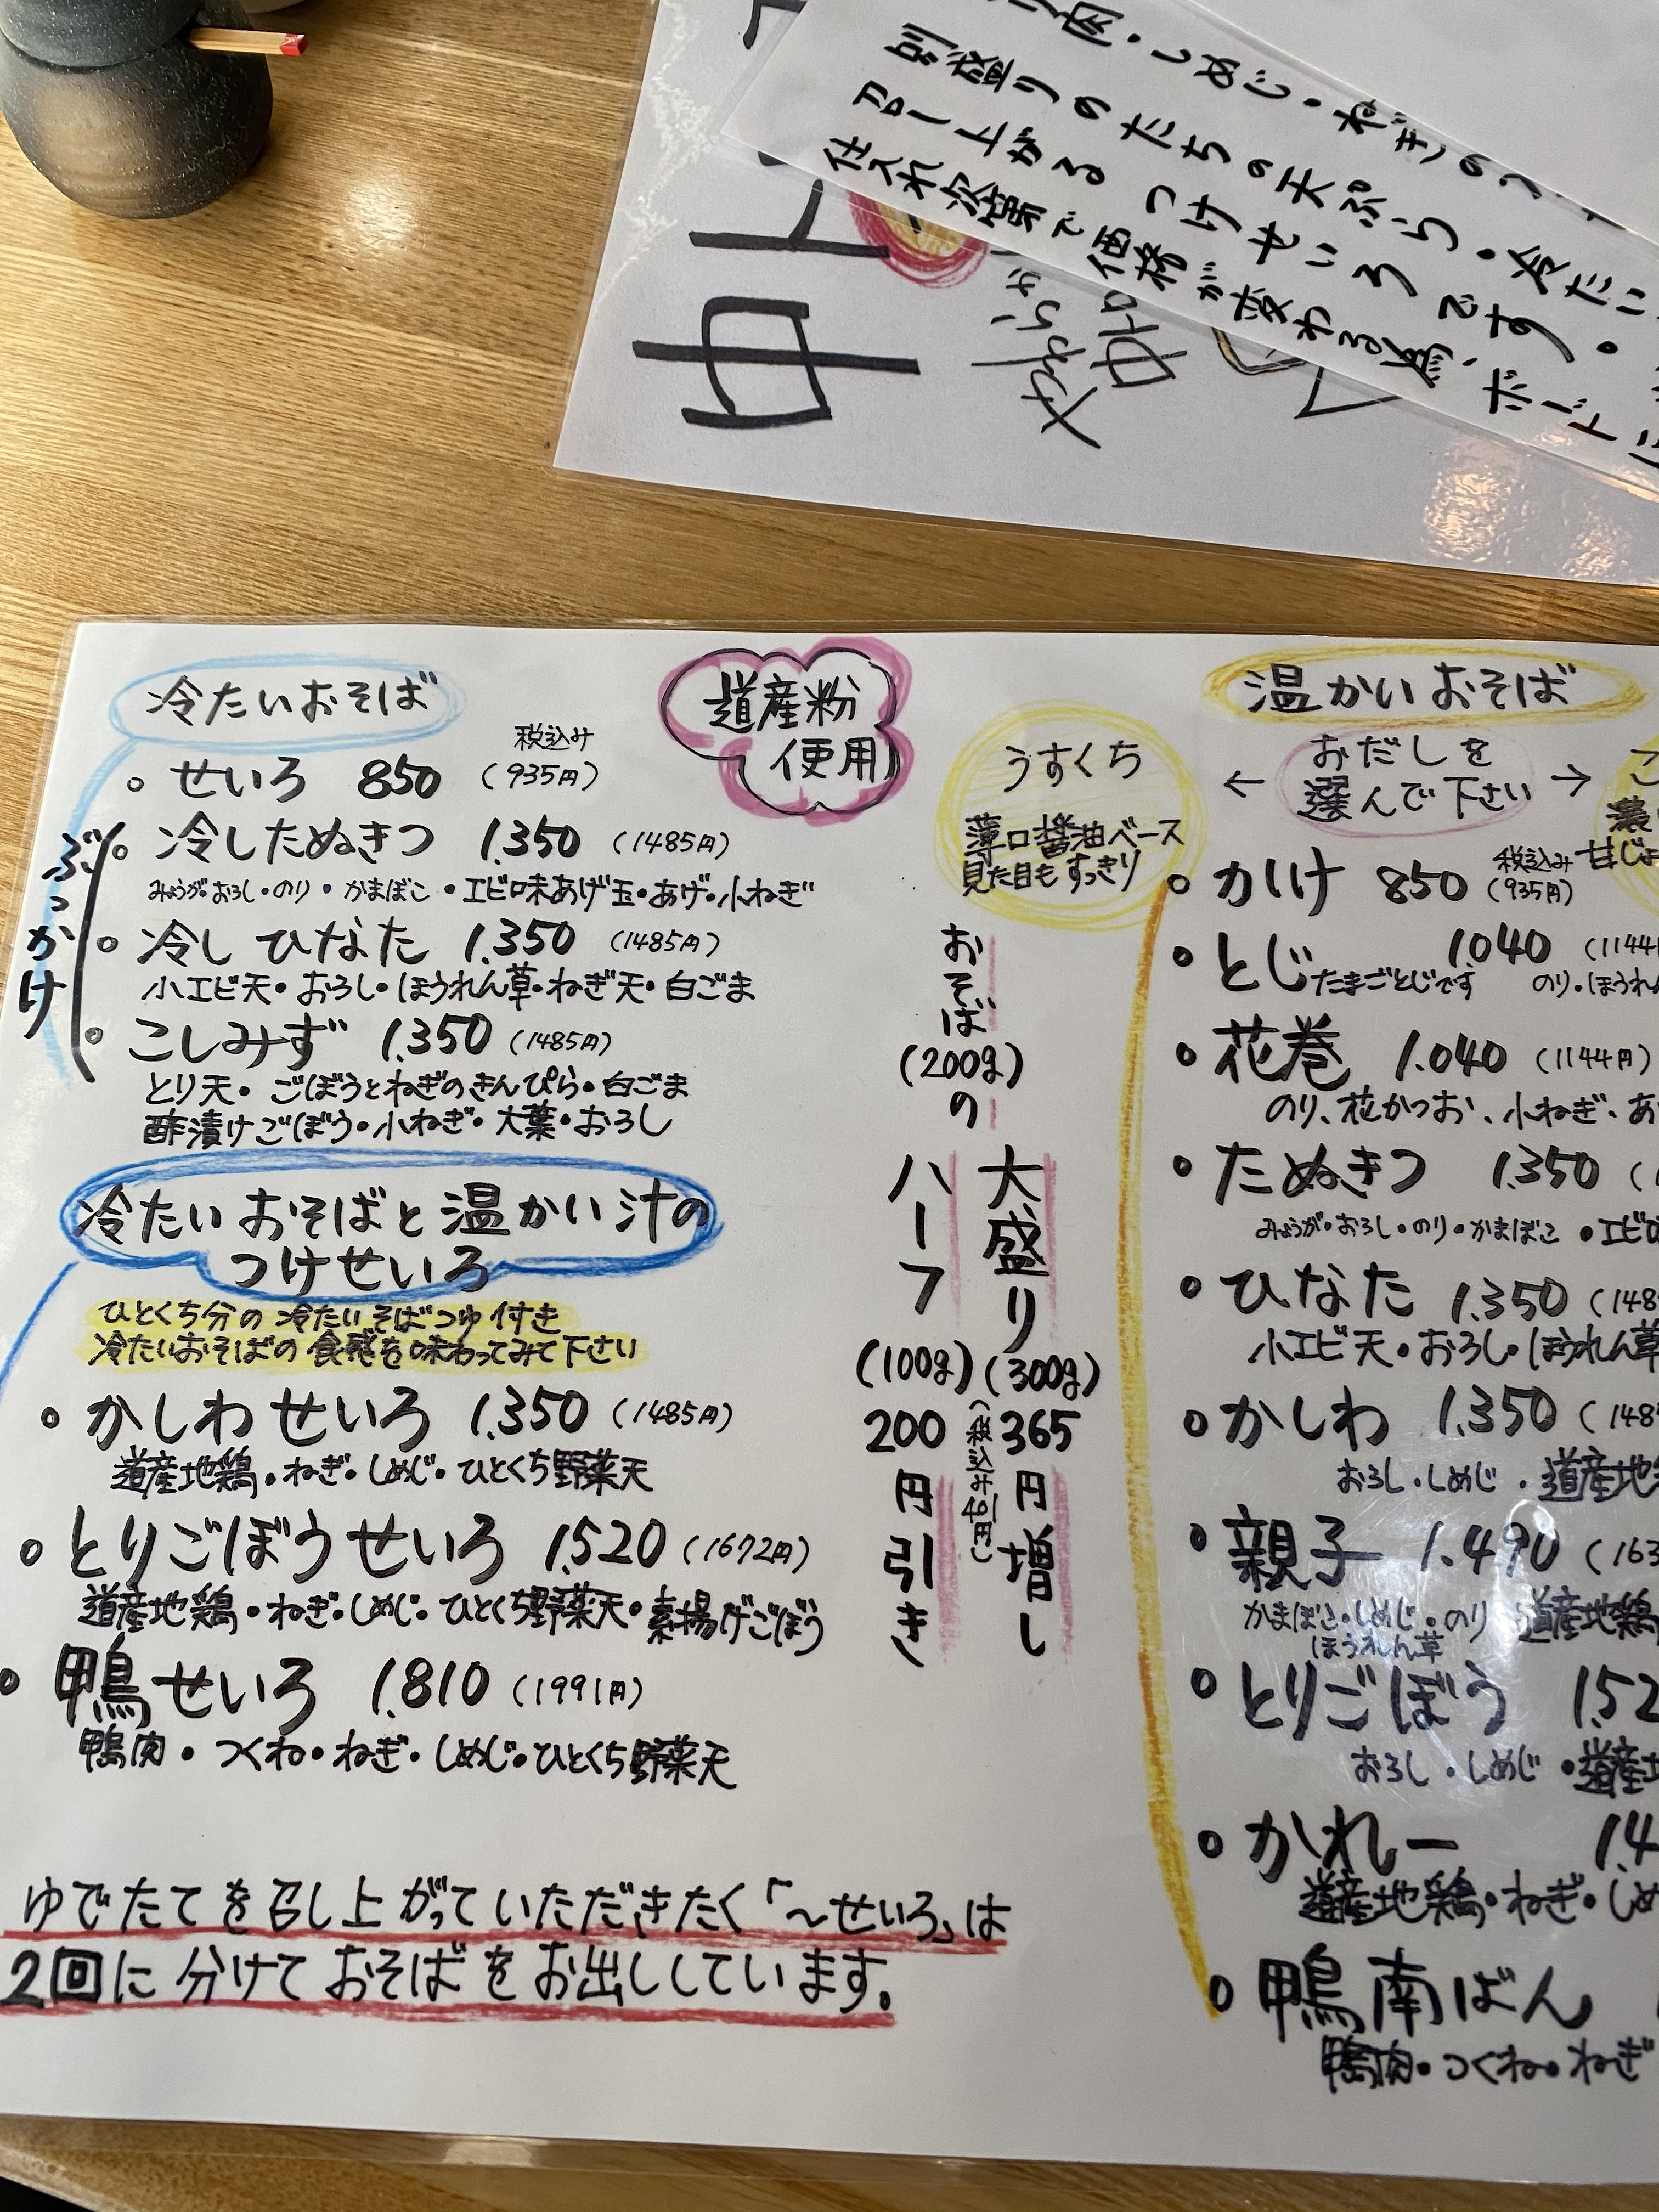 別盛りのたちの天ぷら・冷たい
召し上がるつけせいろです。
仕入れ次第で価格が変わる為、ボードに
冷たいおそば
税込み
せいろ 850 (935円)
ぶっかけ
冷したぬきつ 1.350 (1485円)
みょうが・おろし・のり・かまぼこ・エビ味あげ玉・あげ・小ねぎ
冷しひなた 1.350 (1485円)
小エビ天・おろし・ほうれん草・ねぎ天・白ごま
こしみず 1.350 (1485円)
とり天・ごぼうとねぎのきんぴら・白ごま
酢漬けごぼう・小ねぎ・大葉・おろし
冷たいおそばと温かい汁の
つけせいろ
ひとくち分の冷たいそばつゆ付き
冷たいおそばの食感を味わってみて下さい
かしわせいろ 1.350 (1485円)
道産地鶏・ねぎ・しめじ・ひとくち野菜天
とりごぼうせいろ 1.520 (1672円)
道産地鶏・ねぎ・しめじ・ひとくち野菜天・素揚げごぼう
鴨せいろ 1.810 (1991円)
鴨肉・つくね・ねぎ・しめじ・ひとくち野菜天
ゆでたてを召し上がっていただきたく「～せいろ」は
2回に分けておそばをお出ししています。
道産粉
使用
おそば(200g)の
大盛り(300g)365円増し
(税込み401円)
ハーフ(100g)200円引き
温かいおそば
うすくち
薄口醤油ベース
見た目もすっきり
← おだしを →
選んで下さい
税込み
かけ 850 (935円)
とじ 1.040 (1144円
たまごとじです のり・ほうれん
花巻 1.040 (1144円)
のり、花かつお、小ねぎ、あ
たぬきつ 1.350
みょうが・おろし・のり・かまぼこ・エビ
ひなた 1.350 (148
小エビ天・おろし・ほうれん草
かしわ 1.350 (148
おろし・しめじ・道産地
親子 1.490 (163
かまぼこ・しめじ・のり・道産地鶏
ほうれん草
とりごぼう 1.52
おろし・しめじ・道産
かれー 1.4
道産地鶏・ねぎ・しめ
鴨南ばん
鴨肉・つくね・ねぎ